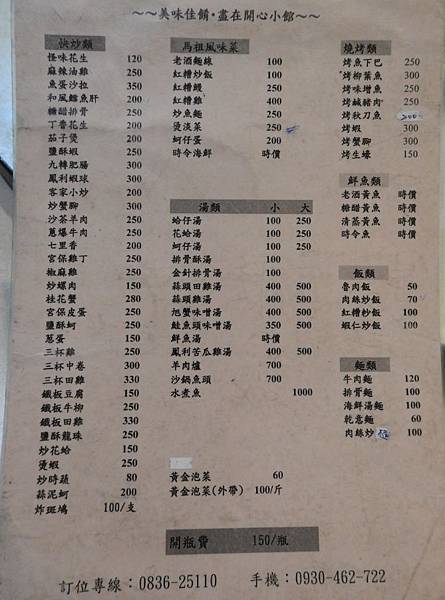 ～～美味佳餚·盡在開心小館～～
快炒類
怪味花生 120
麻辣油雞 250
魚蛋沙拉 350
和風鱈魚肝 200
糖醋排骨 250
丁香花生 200
茄子煲 200
鹽酥蝦 250
九轉肥腸 300
鳳梨蝦球 300
客家小炒 200
炒蟹腳 300
沙茶羊肉 250
蔥爆牛肉 250
七里香 200
宮保雞丁 250
椒麻雞 250
炒螺肉 150
桂花蟹 280
宮保皮蛋 250
鹽酥蚵 250
蔥蛋 150
三杯雞 250
三杯中卷 300
三杯田雞 330
鐵板豆腐 150
鐵板牛柳 250
鐵板田雞 330
鹽酥龍珠 250
炒花蛤 150
燙蝦 250
炒時蔬 80
蒜泥蚵 200
炸斑鳩 100/支
馬祖風味菜
老酒麵線 100
紅糟炒飯 100
紅糟鰻 250
紅糟雞 400
炒魚麵 250
燙淡菜 250
蚵仔蛋 200
時令海鮮 時價
湯類 小 大
蛤仔湯 100 250
花蛤湯 100 250
蚵仔湯 100 250
排骨酥湯 100
金針排骨湯 100
蒜頭田雞湯 400 500
蒜頭雞湯 400 500
旭蟹味噌湯 400 500
鮭魚頭味噌湯 350 500
鮮魚湯 時價
鳳梨苦瓜雞湯 400 500
羊肉爐 700
沙鍋魚頭 700
水煮魚 1000
黃金泡菜 60
黃金泡菜(外帶) 100/斤
燒烤類
烤魚下巴 250
烤柳葉魚 300
烤味增魚 250
烤鹹豬肉 250
烤秋刀魚 200
烤蝦 300
烤蟹腳 300
烤生蠔 150
鮮魚類
老酒黃魚 時價
糖醋黃魚 時價
清蒸黃魚 時價
時令魚 時價
飯類
魯肉飯 50
肉絲炒飯 70
紅糟炒飯 100
蝦仁炒飯 100
麵類
牛肉麵 120
排骨麵 100
海鮮湯麵 100
乾意麵 60
肉絲炒 100
開瓶費 150/瓶
訂位專線：0836-25110 手機：0930-462-722